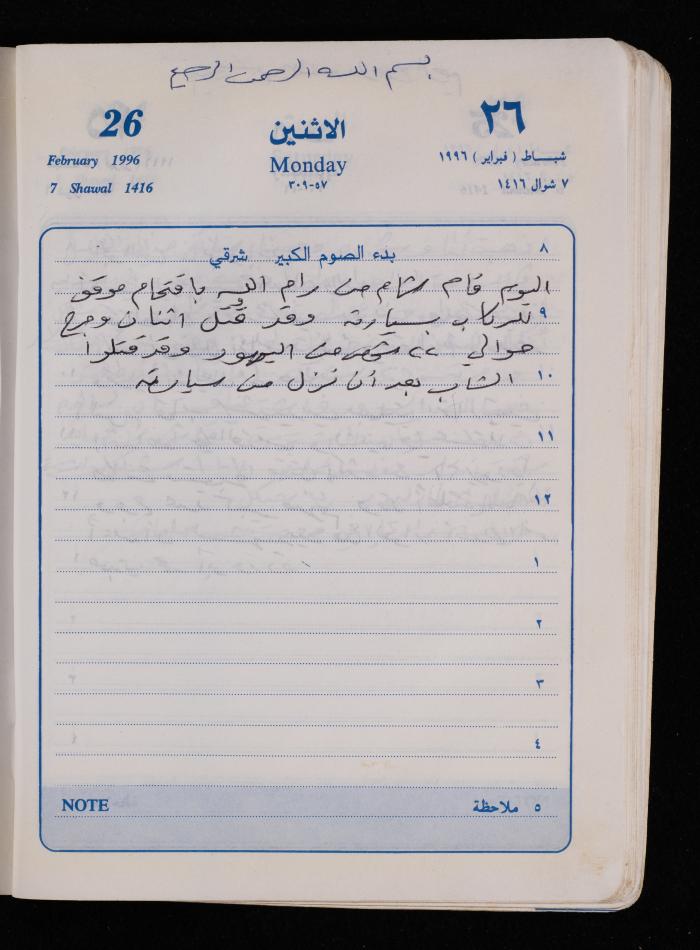 بسم الله الرحمن الرحيم
26 الاثنين ٢٦
February 1996 Monday شباط ( فبراير ) ١٩٩٦
7 Shawal 1416 ٣٠٩-٥٧ ٧ شوال ١٤١٦
٨ بدء الصوم الكبير شرقي
اليوم قام شاب من رام الله باقتحام موقف
٩ للركاب بسيارته وقد قُتل اثنان وجرح
حوالي ٢٢ شخص من اليهود وقد قتلوا
١٠ الشاب بعد أن نزل من سيارته
١١
١٢
١
٢
٣
٤
NOTE ٥ ملاحظة